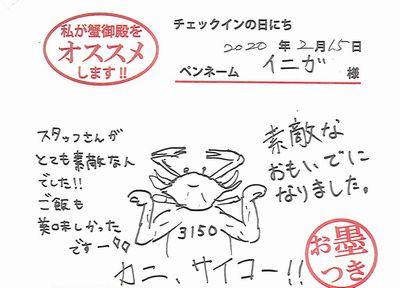 私が蟹御殿を
オススメ
します!!
チェックインの日にち
2020 年 2 月 15 日
ペンネーム イニガ 様
スタッフさんが
とても素敵な人
でした!!
ご飯も
美味しかった
ですー
素敵な
おもいでに
なりました。
3150
カニ、サイコー!!
お墨
つき